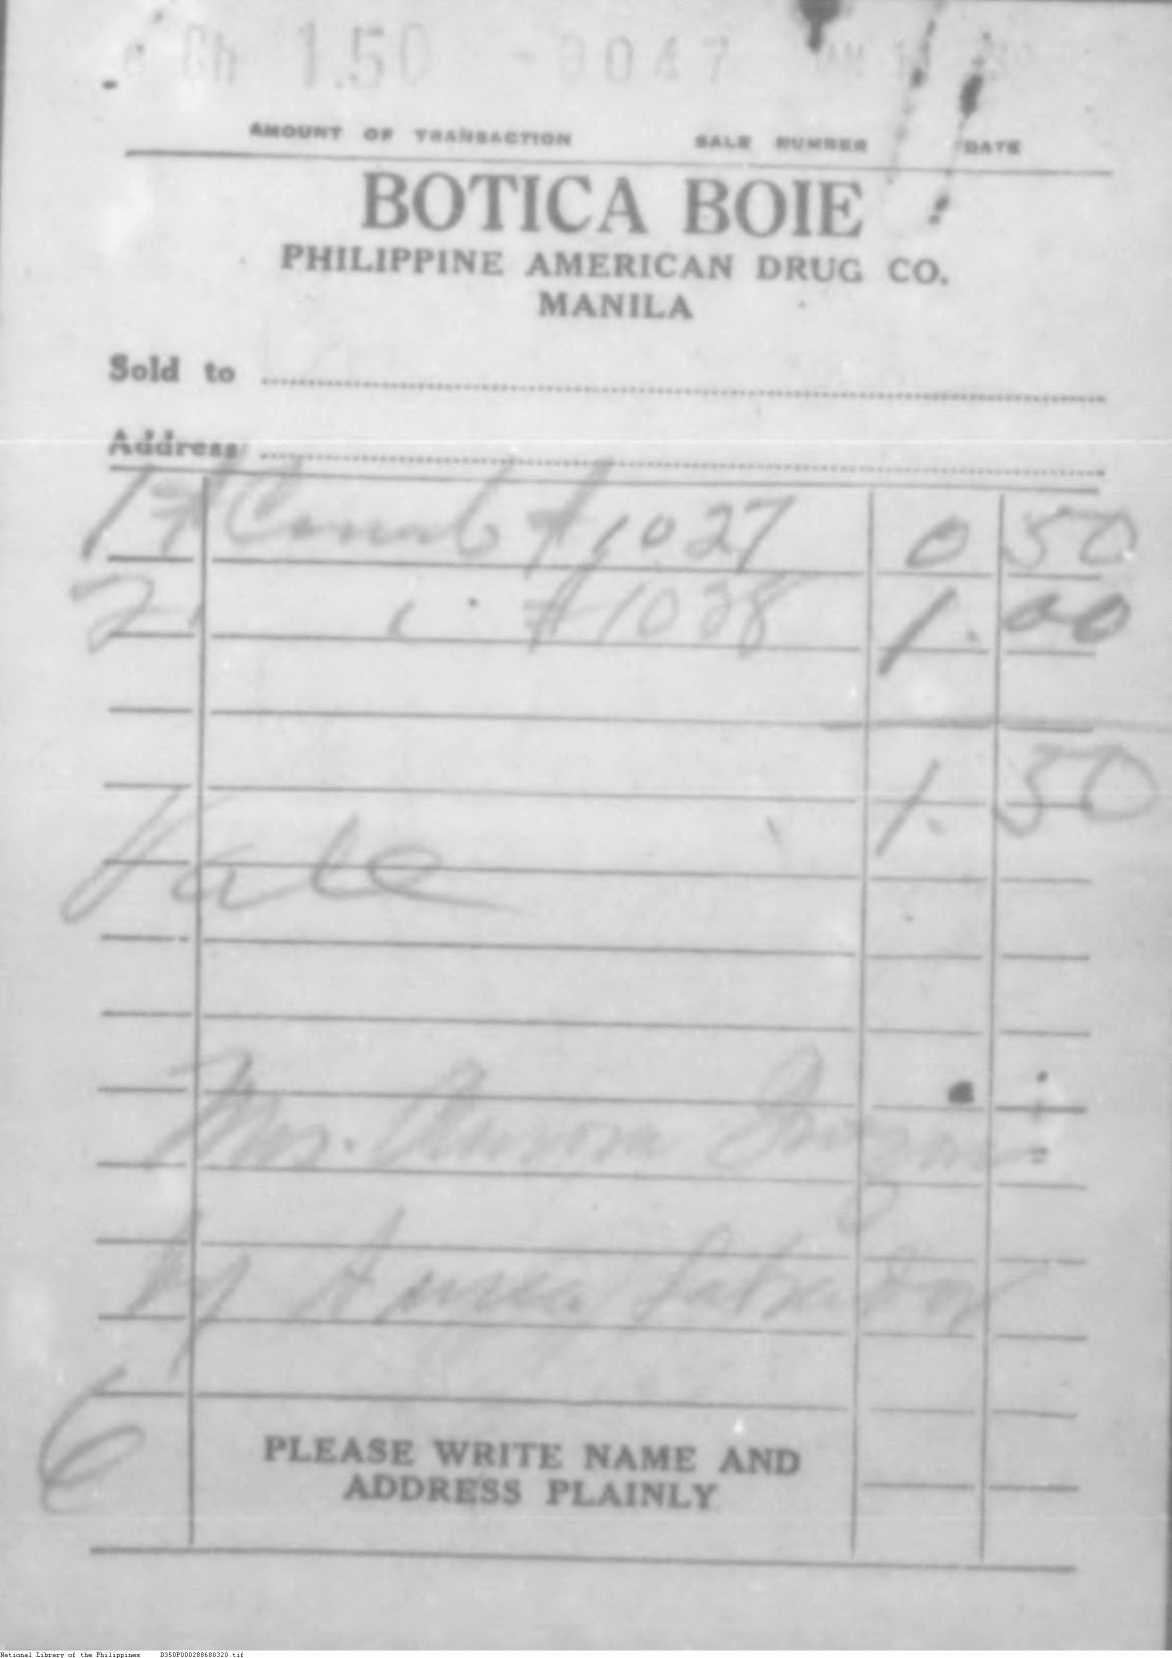 Ch 1.50 -0047
AMOUNT OF TRANSACTION SALE NUMBER DATE
BOTICA BOIE
PHILIPPINE AMERICAN DRUG CO.
MANILA
Sold to
Address
1 # Comb # 1027 0 50
2 " # 1038 1.00
1.50
Vale
Mrs. Aurora
by Aurea Labrador
6
PLEASE WRITE NAME AND
ADDRESS PLAINLY
National Library of the Philippines D350P000288680320.tif